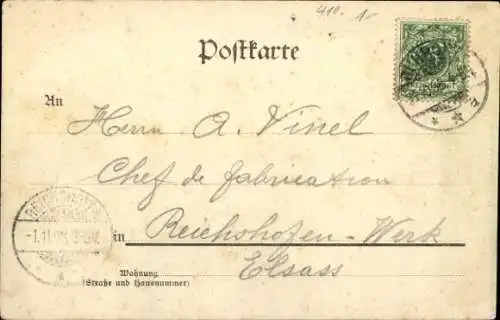 410. 1-
Postkarte
An
Herrn A. Vinel
Chef de fabrication
in Reichshofen-Werk
Elsass
Wohnung
(Straße und Hausnummer)